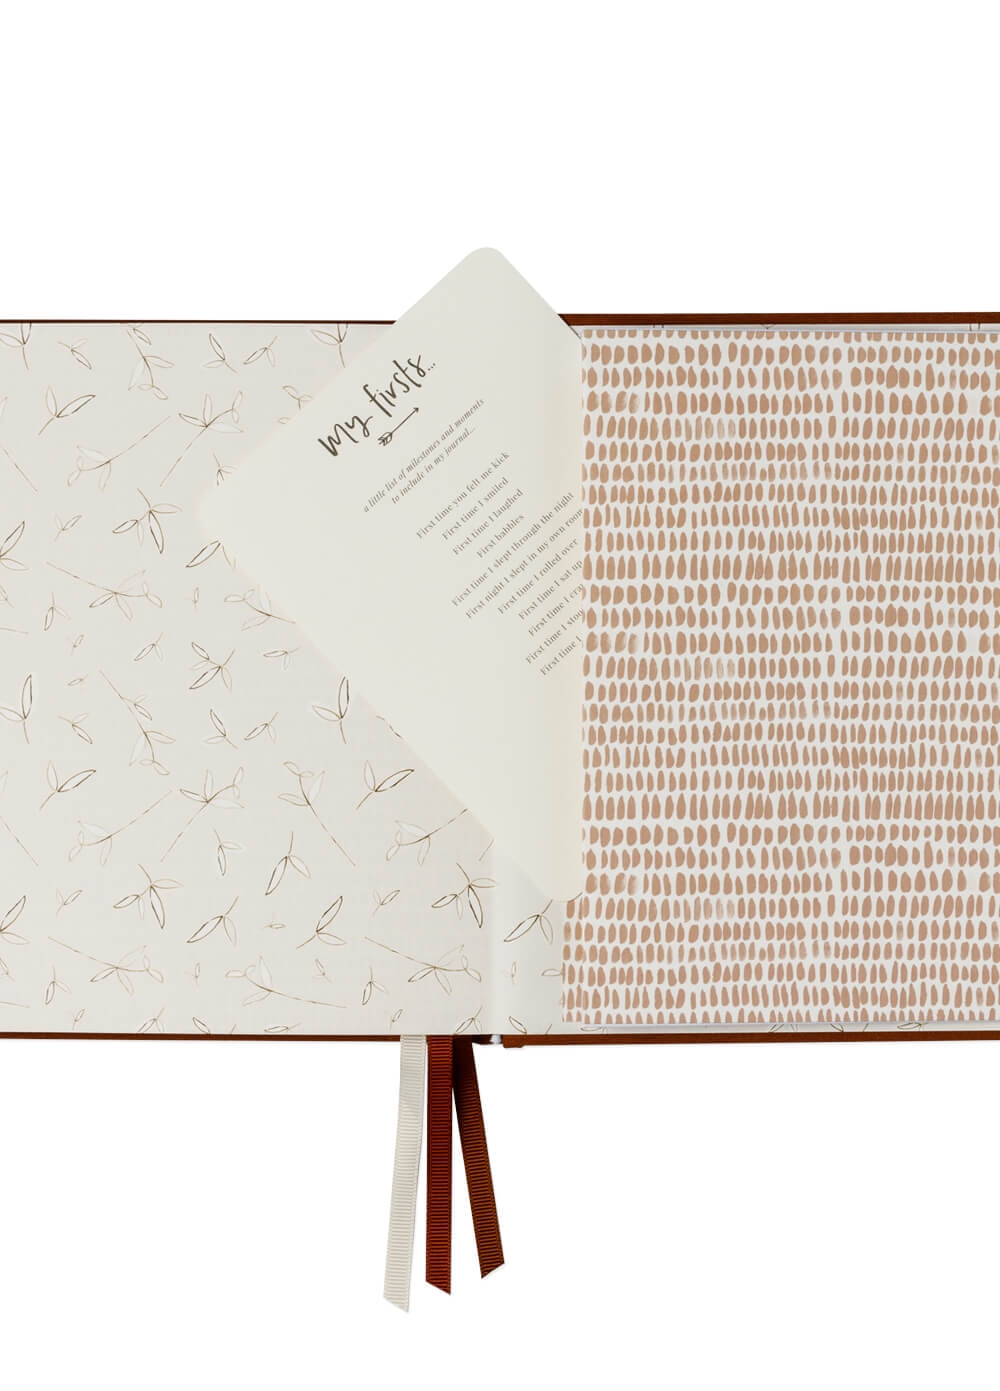 My firsts...
a little list of milestones and moments
to include in my journal...
First time you felt me kick
First time I smiled
First time I laughed
First babbles
First time I slept through the night
First night I slept in my own room
First time I rolled over
First time I sat up
First time I
First time I
First time I